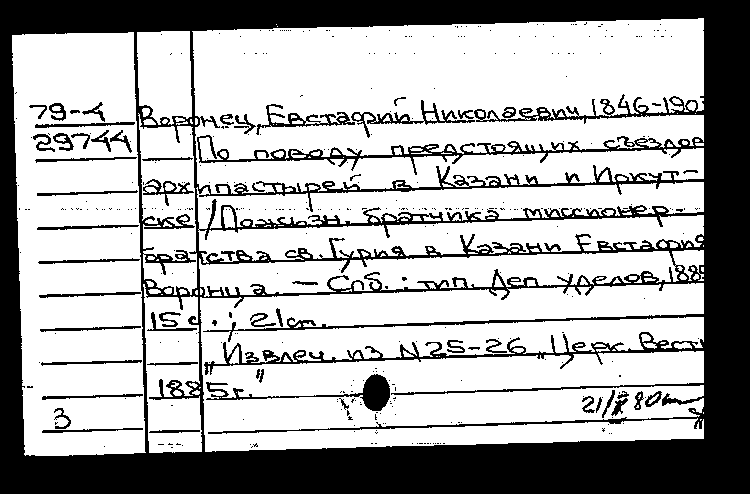 79-4 Воронец, Евстафий Николаевич, 1846-190
29744 По поводу предстоящих съездов
архипастырей в Казани и Иркут-
ске / Пожизн. братчика миссионер.
братства св. Гурия в Казани Евстафия
Воронца. — Спб. : тип. Деп. уделов, 188
15 с. ; 21 см.
"Извлеч. из N 25-26 „Церк. Вестн
1885 г."
3